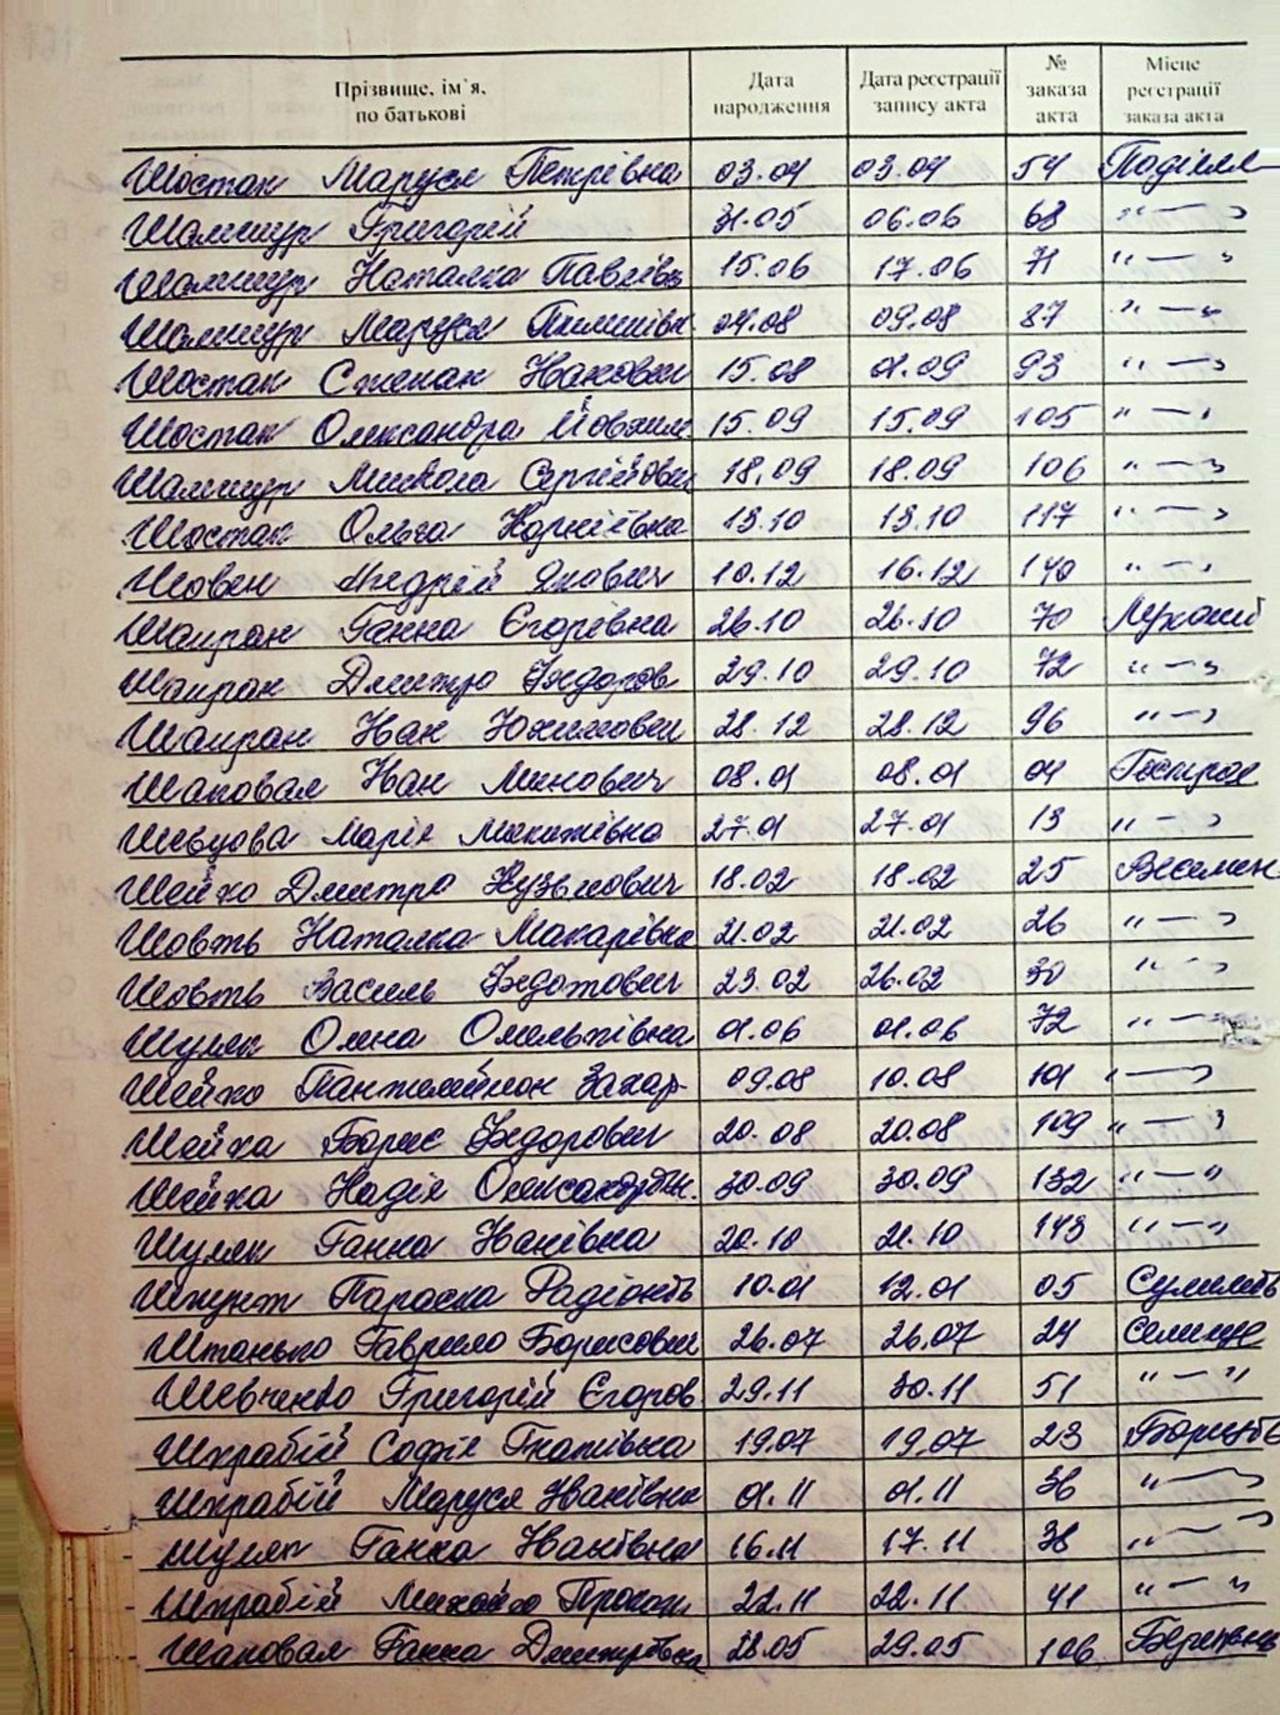 Прізвище, ім`я, по батькові Дата народження Дата реєстрації запису акта № заказа акта Місце реєстрації заказа акта
Шостак Маруся Петрівна 03.04 03.04 54 Поділля
Шамшур Григорій 31.05 06.06 68 " — "
Шамшур Наталка Павлівн 15.06 17.06 71 " — "
Шамшур Маруся 04.08 09.08 87 " — "
Шостак Степан Іванович 15.08 01.09 93 " — "
Шостак Олександра Йовхим. 15.09 15.09 105 " — "
Шамшур Микола Сергійович 18.09 18.09 106 " — "
Шостак Ольга Корніївна 13.10 13.10 117 " — "
Шовен Андрій Якович 10.12 16.12 140 " — "
Шапран Ганна Єгорівна 26.10 26.10 70
Шапран Дмитро Федоров 29.10 29.10 72 " — "
Шапран Іван Юхимович 28.12 28.12 96 " — "
Шаповал Іван Минович 08.01 08.01 04
Шевцова Марія Микитівна 27.01 27.01 13 " — "
Шейко Дмитро Кузьмович 18.02 18.02 25
Шовть Наталка Макарівна 21.02 21.02 26 " — "
Шовть Василь Федотович 23.02 26.02 30 " — "
Шуляк Олена Омельківна 01.06 01.06 72 " — "
Шейко Пантелеймон Захар. 09.08 10.08 101 " — "
Шейка Борис Федорович 20.08 20.08 109 " — "
Шейка Надія Олександрівн. 30.09 30.09 132 " — "
Шуляк Ганна Іванівна 20.10 21.10 143 " — "
Шкунт Параска 10.01 12.01 05
Штанько Гаврило Борисович 26.07 26.07 24 Селище
Шевченко Григорій Єгоров. 29.11 30.11 51 " — "
Шкрабій Софія Гнатівна 19.07 19.07 23
Шкрабій Маруся Іванівна 01.11 01.11 36 " — "
Шуляк Ганна Іванівна 16.11 17.11 38 " — "
Шкрабій Михайло Прокоп. 22.11 22.11 41 " — "
Шаповал Ганна Дмитрівна 28.05 29.05 106